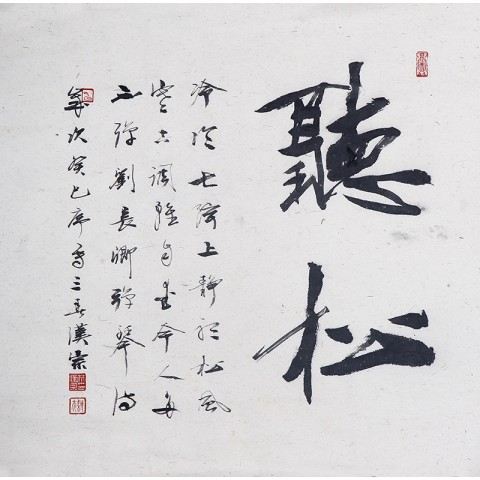 聽松
泠泠七弦上靜聽松風
寒古調雖自愛今人多
不彈劉長卿彈琴詩
歲次癸巳